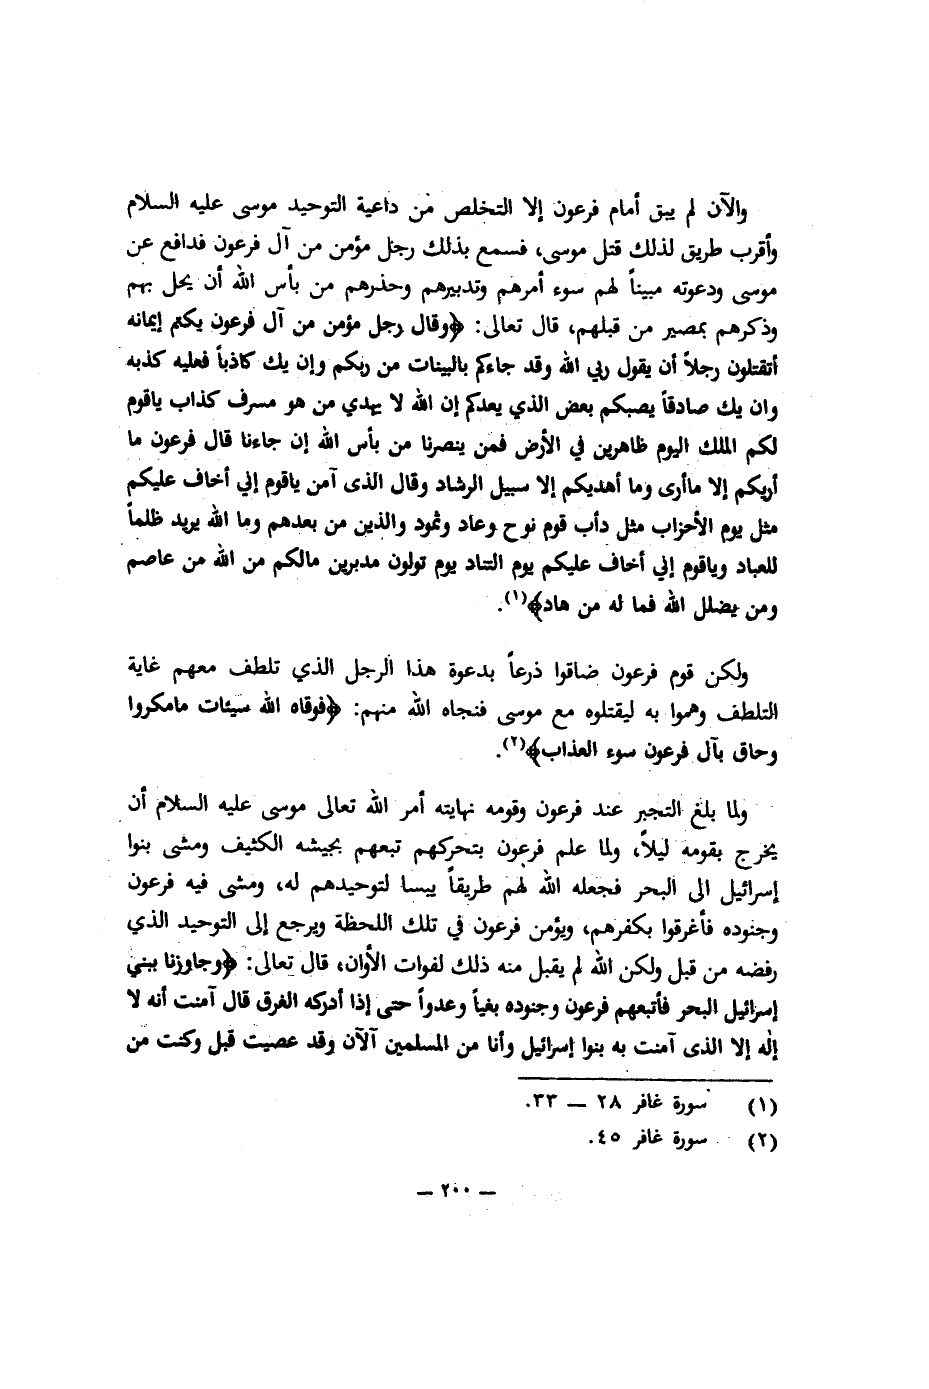 والآن لم يبق أمام فرعون إلا التخلص من داعية التوحيد موسى عليه السلام
وأقرب طريق لذلك قتل موسى، فسمع بذلك رجل مؤمن من آل فرعون فدافع عن
موسى ودعوته مبيناً لهم سوء أمرهم وتدبيرهم وحذرهم من بأس الله أن يحل بهم
وذكرهم بمصير من قبلهم، قال تعالى: ﴿وقال رجل مؤمن من آل فرعون يكتم إيمانه
أتقتلون رجلاً أن يقول ربي الله وقد جاءكم بالبينات من ربكم وإن يك كاذباً فعليه كذبه
وان يك صادقاً يصبكم بعض الذي يعدكم إن الله لا يهدي من هو مسرف كذاب ياقوم
لكم الملك اليوم ظاهرين في الأرض فمن ينصرنا من بأس الله إن جاءنا قال فرعون ما
أريكم إلا ماأرى وما أهديكم إلا سبيل الرشاد وقال الذى آمن ياقوم إني أخاف عليكم
مثل يوم الأحزاب مثل دأب قوم نوح وعاد وثمود والذين من بعدهم وما الله يريد ظلماً
للعباد وياقوم إني أخاف عليكم يوم التناد يوم تولون مدبرين مالكم من الله من عاصم
ومن يضلل الله فما له من هاد﴾(١).
ولكن قوم فرعون ضاقوا ذرعاً بدعوة هذا الرجل الذي تلطف معهم غاية
التلطف وهموا به ليقتلوه مع موسى فنجاه الله منهم: ﴿فوقاه الله سيئات مامكروا
وحاق بآل فرعون سوء العذاب﴾(٢).
ولما بلغ التجبر عند فرعون وقومه نهايته أمر الله تعالى موسى عليه السلام أن
يخرج بقومه ليلاً، ولما علم فرعون بتحركهم تبعهم بجيشه الكثيف ومشى بنوا
إسرائيل الى البحر فجعله الله لهم طريقاً يبسا لتوحيدهم له، ومشى فيه فرعون
وجنوده فأغرقوا بكفرهم، ويؤمن فرعون في تلك اللحظة ويرجع إلى التوحيد الذي
رفضه من قبل ولكن الله لم يقبل منه ذلك لفوات الأوان، قال تعالى: ﴿وجاوزنا ببني
إسرائيل البحر فأتبعهم فرعون وجنوده بغياً وعدواً حتى إذا أدركه الغرق قال آمنت أنه لا
إله إلا الذى آمنت به بنوا إسرائيل وأنا من المسلمين آلآن وقد عصيت قبل وكنت من
(١) سورة غافر ٢٨ ــ ٣٣.
(٢) سورة غافر ٤٥.
ــ ٢٠٠ ــ